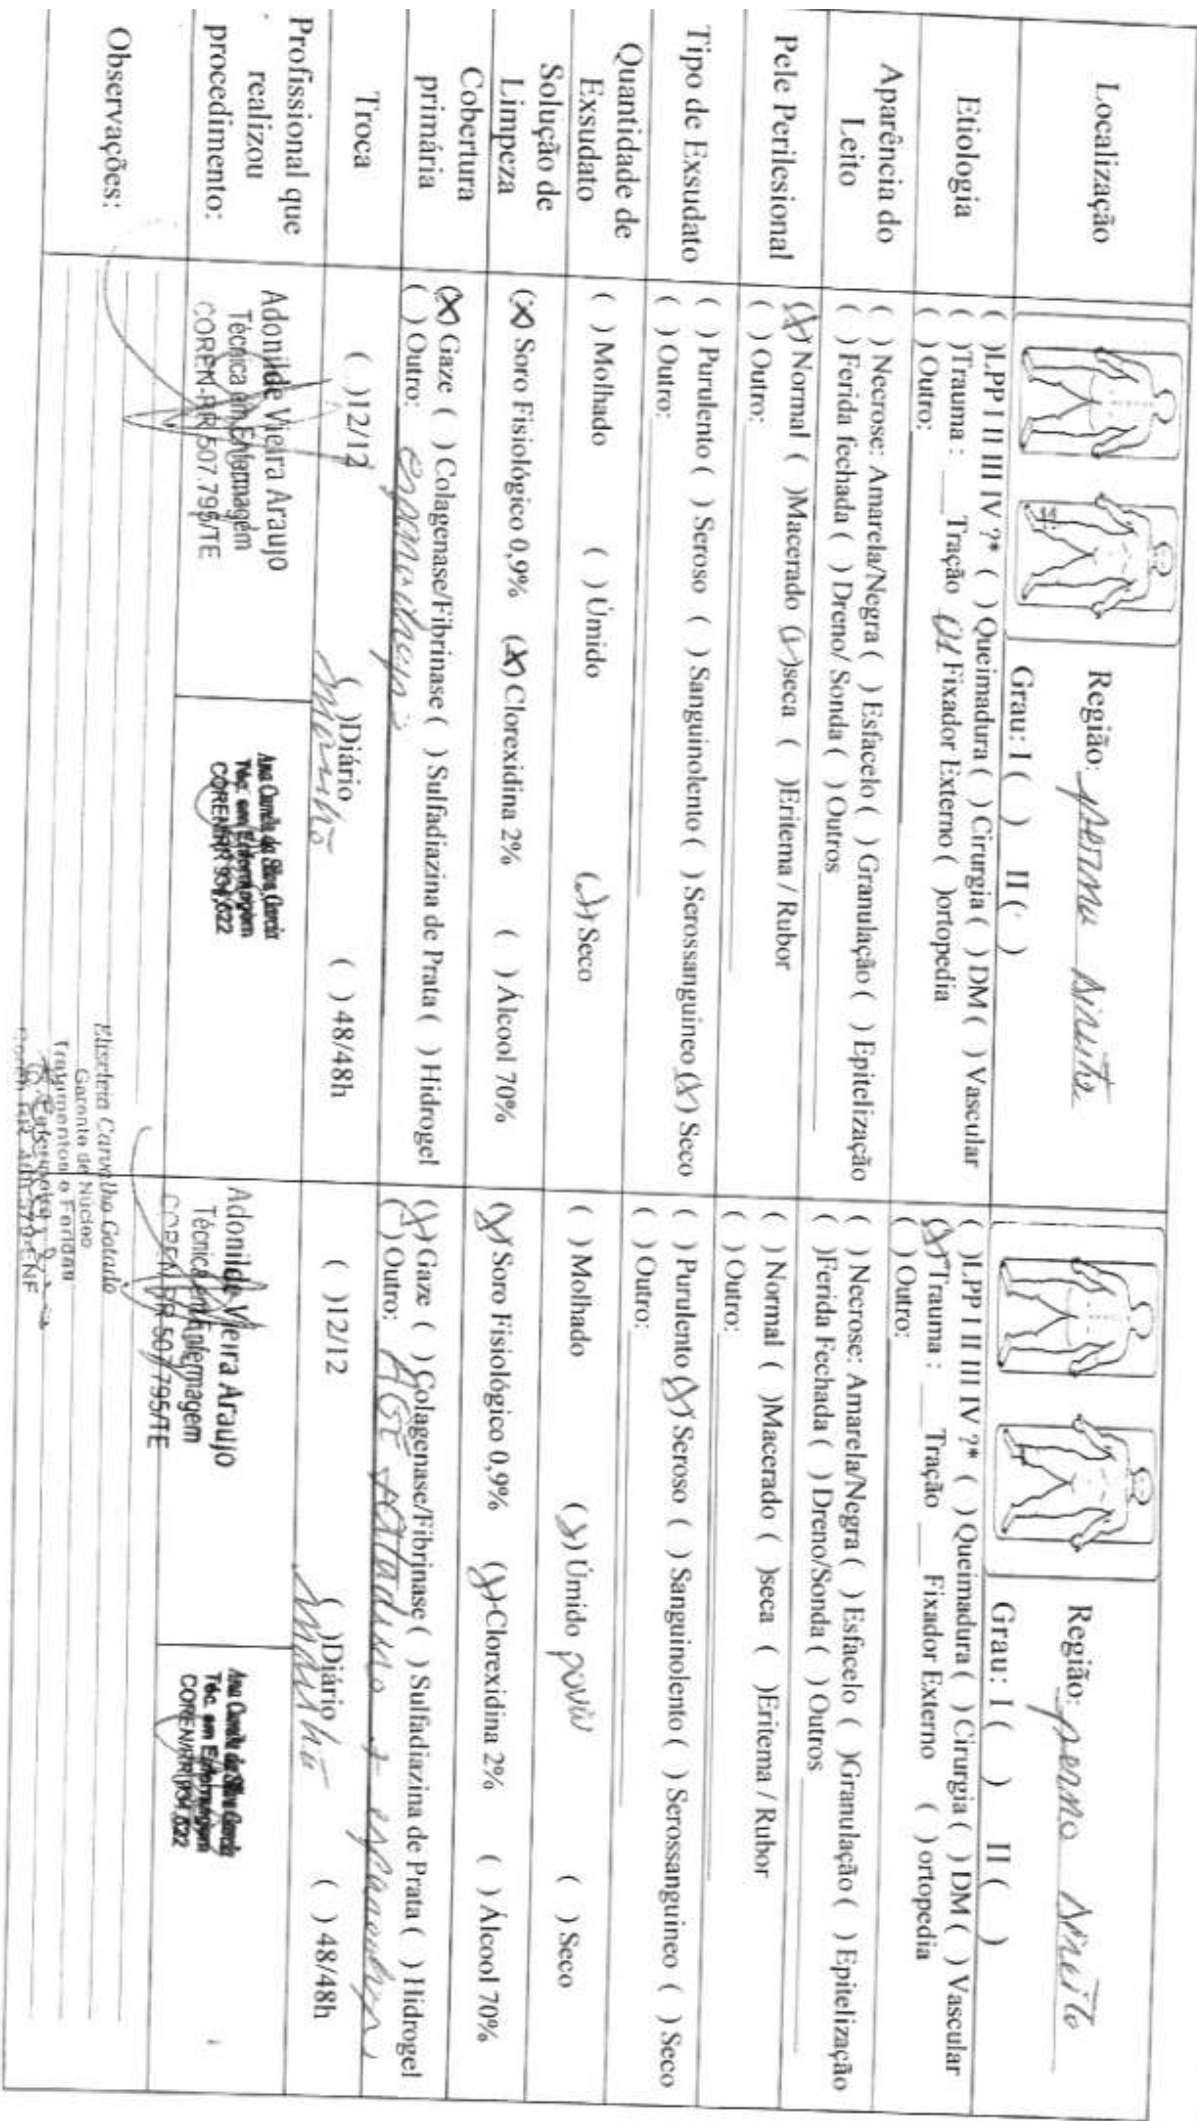 Localização
Região: perna direita
Grau: I ( ) II ( )
Região: perna direita
Grau: I ( ) II ( )
Etiologia
( )LPP I II III IV ?* ( ) Queimadura ( ) Cirurgia ( ) DM ( ) Vascular
( )Trauma : __ Tração 01 Fixador Externo ( )ortopedia
( ) Outro:
( )LPP I II III IV ?* ( ) Queimadura ( ) Cirurgia ( ) DM ( ) Vascular
(X)Trauma : ___ Tração ___ Fixador Externo ( ) ortopedia
( ) Outro:
Aparência do
Leito
( ) Necrose: Amarela/Negra ( ) Esfacelo ( ) Granulação ( ) Epitelização
( ) Ferida fechada ( ) Dreno/ Sonda ( ) Outros
( ) Necrose: Amarela/Negra ( ) Esfacelo ( )Granulação ( ) Epitelização
( )Ferida Fechada ( ) Dreno/Sonda ( ) Outros
Pele Perilesional
(X) Normal ( )Macerado (X)seca ( )Eritema / Rubor
( ) Outro:
( ) Normal ( )Macerado ( )seca ( )Eritema / Rubor
( ) Outro:
Tipo de Exsudato
( ) Purulento ( ) Seroso ( ) Sanguinolento ( ) Serossanguineo (X) Seco
( ) Outro:
( ) Purulento (X) Seroso ( ) Sanguinolento ( ) Serossanguineo ( ) Seco
( ) Outro:
Quantidade de
Exsudato
( ) Molhado ( ) Úmido (X) Seco
( ) Molhado (X) Úmido ( ) Seco
Solução de
Limpeza
(X) Soro Fisiológico 0,9% (X) Clorexidina 2% ( ) Álcool 70%
(X) Soro Fisiológico 0,9% (X) Clorexidina 2% ( ) Álcool 70%
Cobertura
primária
(X) Gaze ( ) Colagenase/Fibrinase ( ) Sulfadiazina de Prata ( ) Hidrogel
( ) Outro:
(X) Gaze ( ) Colagenase/Fibrinase ( ) Sulfadiazina de Prata ( ) Hidrogel
(X) Outro: AGE +
Troca
( )12/12 ( )Diário ( ) 48/48h
( )12/12 ( )Diário ( ) 48/48h
Profissional que
realizou
procedimento:
Adonilde Vieira Araujo
Técnica em Enfermagem
COREN-RR 507.795/TE
Ana Camila da Silva Garcia
Téc. em Enfermagem
COREN/RR 934.622
Adonilde Vieira Araujo
Técnica em Enfermagem
COREN-RR 507.795/TE
Ana Camila da Silva Garcia
Téc. em Enfermagem
COREN/RR 934.622
Observações:
Carvalho
Gerente de Núcleo